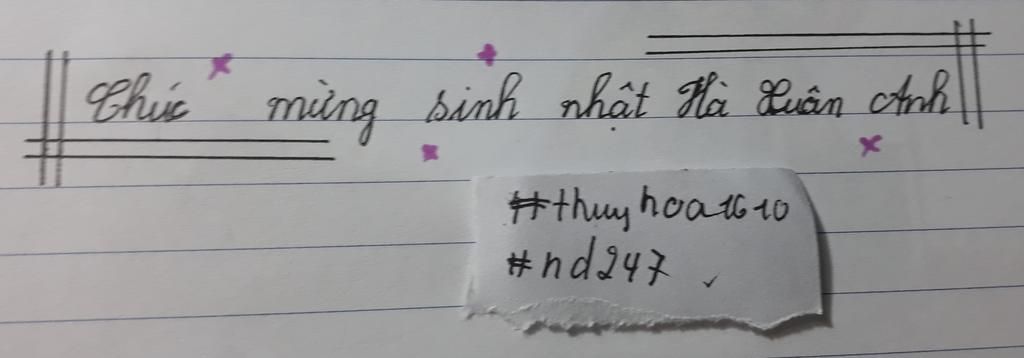 Chúc mừng sinh nhật Hà Xuân Anh
#thuyhoa1610
#nd247